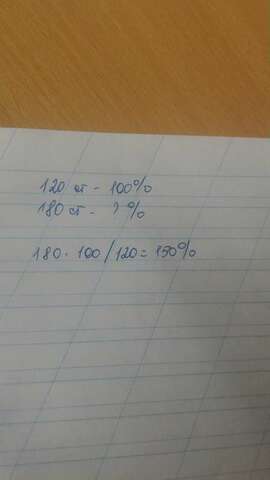 120 ст - 100%
180 ст - ? %
180 · 100 / 120 = 150%